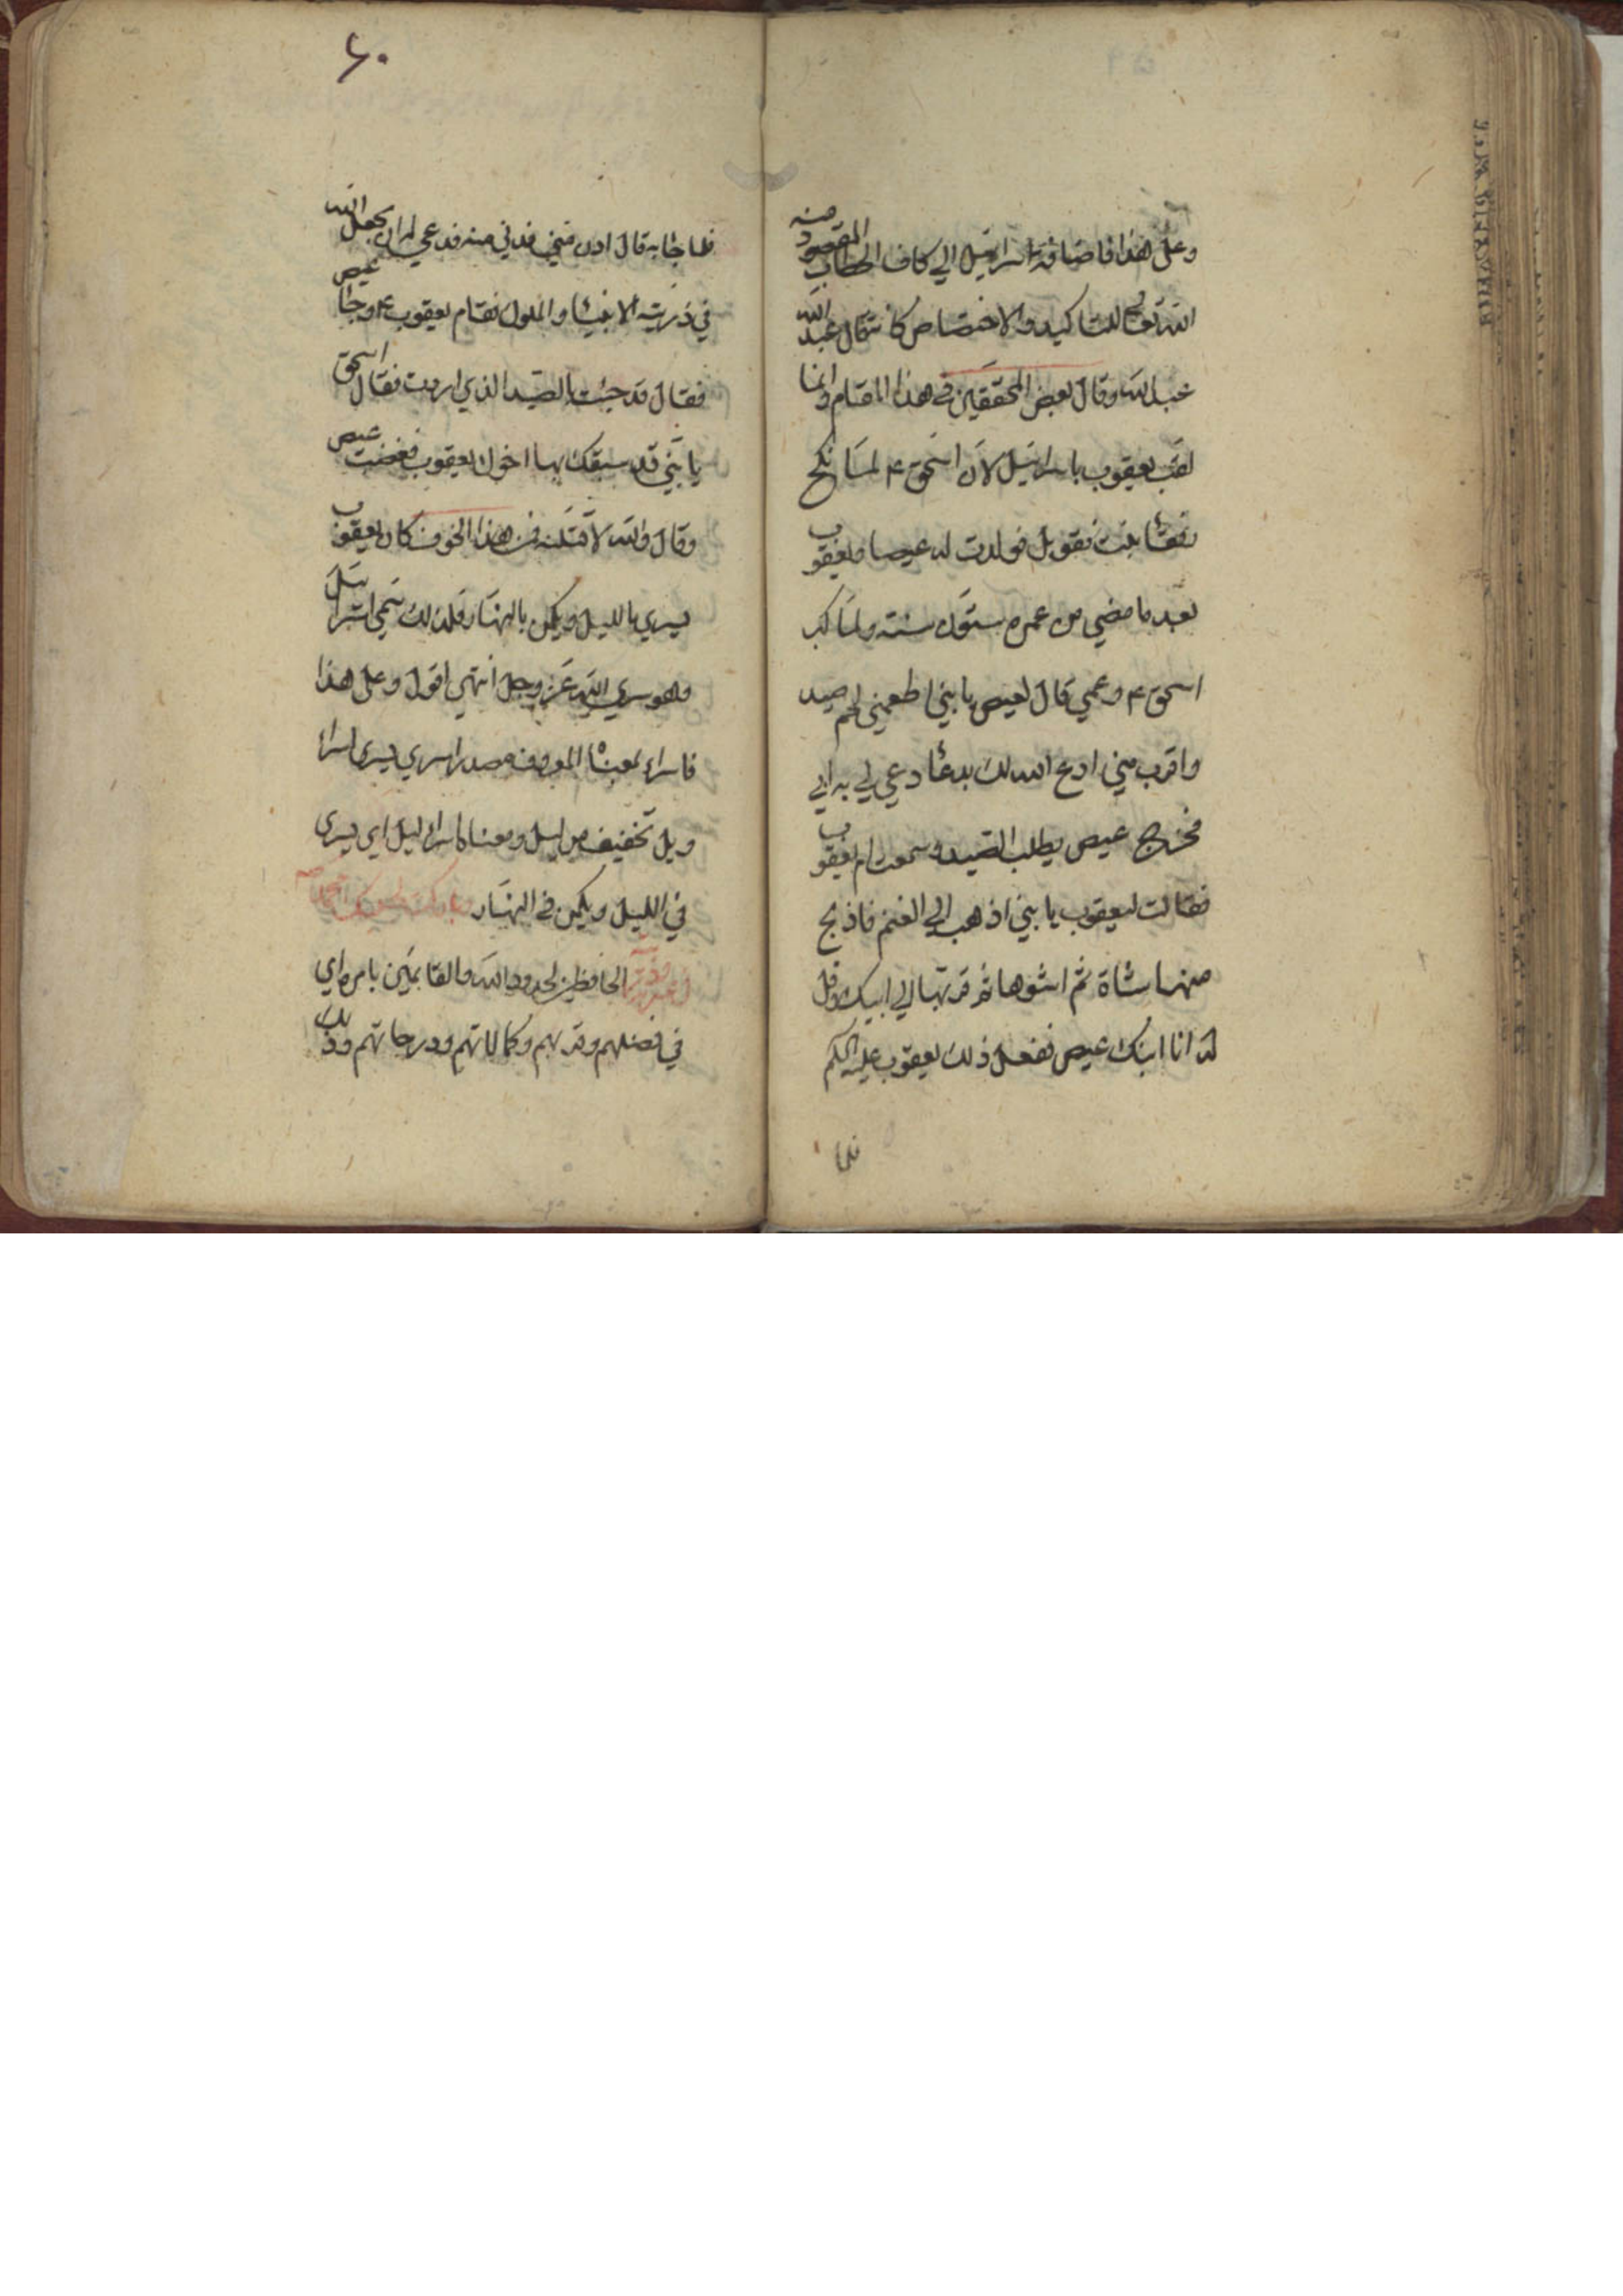 وعلى هذا فاضافة اسرائيل الي كاف الخطاب المقصود منه
الله تعالى للتاكيد والاختصاص كما يقال عبد الله
عبد الله وقال بعض المحققين في هذا المقام وانما
لقب يعقوب باسرائيل لان اسحق ع لما نكح
بنت فولدت له عيصا ويعقوب
بعد ما مضي من عمره ستون سنة ولما كبر
اسحق ع وعمي قال لعيص يا بني اطعمني لحم صيد
واقرب مني ادع الله لك بدعاء دعي لي به ابي
فخرج عيص يطلب الصيد وسمعت ام يعقوب
فقالت ليعقوب يا بني اذهب الي الغنم فاذبح
منها شاة ثم اشوها ثم قربها الي ابيك وقل
له انا ابنك عيص ففعل ذلك يعقوب عليه
فلما
٦٠
فلما جاء به قال ادن مني فدني منه فدعي له ان يجعل الله
في ذريته الانبياء والملوك فقام يعقوب ع وجاء عيص
فقال قد جئت بالصيد الذي اردت فقال اسحق
يا بني قد سبقك بها اخوك يعقوب فغضب عيص
وقال والله لاقتلنه فمن هذا الخوف كان يعقوب
يسري بالليل ويكمن بالنهار فلذلك سمي اسرائيل
وهو سري الله عز وجل انتهي اقول وعلى هذا
فاسراء بمعناه المعروف مصدر اسري يسري اسراء
ويل تخفيف من ليل ومعناه اسراء ليل اي يسري
في الليل ويكمن في النهار وباركت لحبيبك محمد ص
في عترته وذريته الحافظين لحدود الله والقائمين بامره اي
في فضلهم وقربهم وكمالاتهم ودرجاتهم وذلك